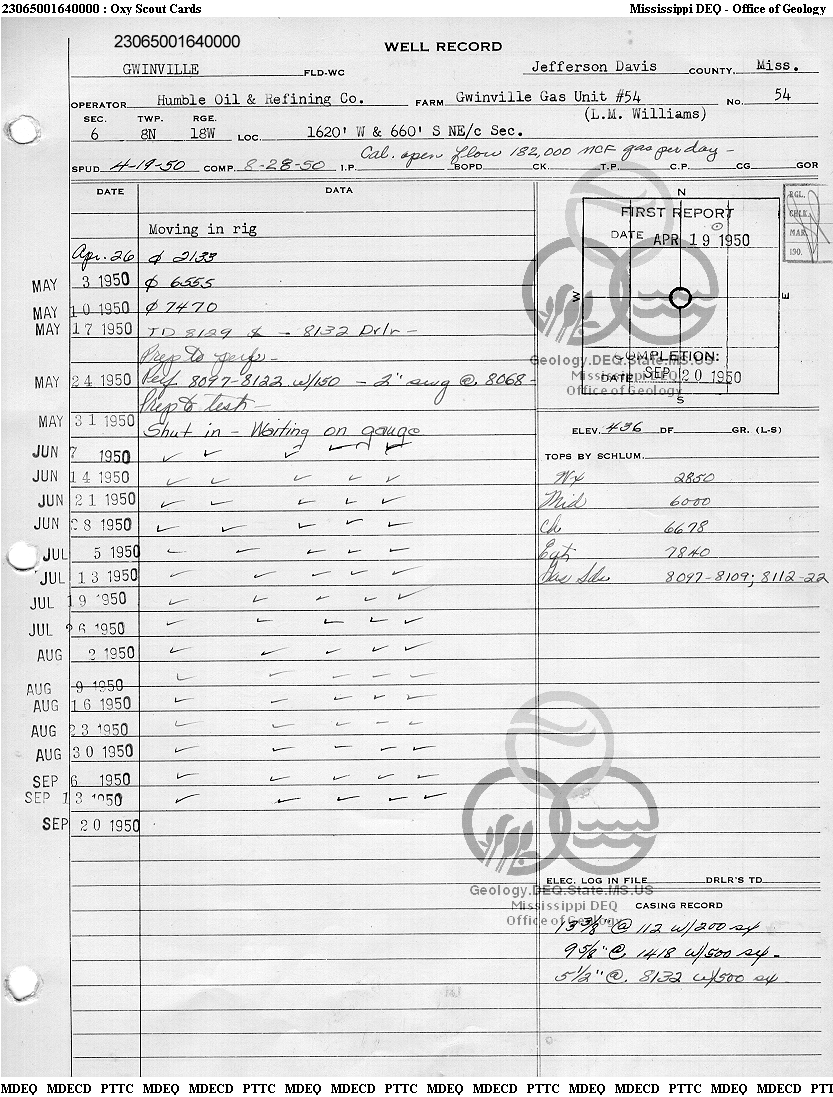 23065001640000 : Oxy Scout Cards Mississippi DEQ - Office of Geology
23065001640000
WELL RECORD
GWINVILLE FLD-WC Jefferson Davis COUNTY Miss.
OPERATOR Humble Oil & Refining Co. FARM Gwinville Gas Unit #54 NO. 54
(L.M. Williams)
SEC. TWP. RGE.
6 8N 18W LOC. 1620' W & 660' S NE/c Sec.
Cal. open flow 182,000 MCF gas per day -
SPUD 4-19-50 COMP. 8-28-50 I.P. BOPD CK. T.P. C.P. CG GOR
DATE DATA
Moving in rig
Apr. 26 φ 2133
MAY 3 1950 φ 6555
MAY 10 1950 φ 7470
MAY 17 1950 TD 8129 - 8132 Drlr -
Prep to perf -
MAY 24 1950 Perf 8097-8122 w/150 - 2" swg @ 8068 -
Prep to test -
MAY 31 1950 Shut in - Waiting on gauge
JUN 7 1950 ✓ ✓ ✓ ✓ ✓
JUN 14 1950 ✓ ✓ ✓ ✓ ✓
JUN 21 1950 ✓ ✓ ✓ ✓ ✓
JUN 28 1950 ✓ ✓ ✓ ✓ ✓
JUL 5 1950 ✓ ✓ ✓ ✓ ✓
JUL 13 1950 ✓ ✓ ✓ ✓ ✓
JUL 19 1950 ✓ ✓ ✓ ✓ ✓
JUL 26 1950 ✓ ✓ ✓ ✓ ✓
AUG 2 1950 ✓ ✓ ✓ ✓ ✓
AUG 9 1950 ✓ ✓ ✓ ✓ ✓
AUG 16 1950 ✓ ✓ ✓ ✓ ✓
AUG 23 1950 ✓ ✓ ✓ ✓ ✓
AUG 30 1950 ✓ ✓ ✓ ✓ ✓
SEP 6 1950 ✓ ✓ ✓ ✓ ✓
SEP 13 1950 ✓ ✓ ✓ ✓ ✓
SEP 20 1950
N
FIRST REPORT
DATE APR 19 1950
W E
COMPLETION:
DATE SEP 20 1950
S
RGL.
CHLK.
MAR.
190.
Geology.DEQ.State.MS.US
Mississippi DEQ
Office of Geology
ELEV. 436 DF GR. (L-S)
TOPS BY SCHLUM.
Wx 2850
Mid 6000
Ch 6678
Egt 7840
Gas Sds 8097-8109; 8112-22
Geology.DEQ.State.MS.US
Mississippi DEQ
Office of Geology
ELEC. LOG IN FILE DRLR'S TD
CASING RECORD
13 3/8" @ 112 w/200 sx
9 5/8" @ 1418 w/500 sx -
5 1/2" @ 8132 w/500 sx -
MDEQ MDECD PTTC MDEQ MDECD PTTC MDEQ MDECD PTTC MDEQ MDECD PTTC MDEQ MDECD PTTC MDEQ MDECD PTT